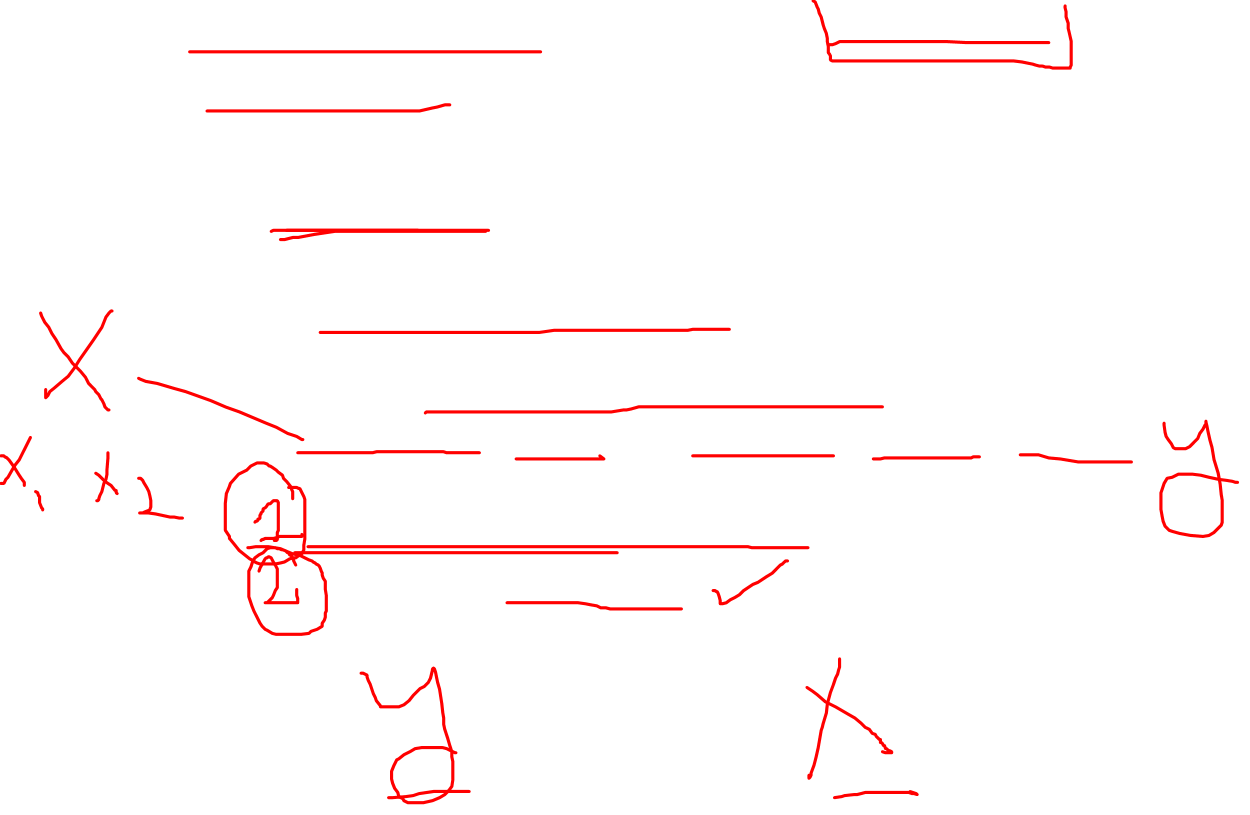 X
x, x2
1
2
y
y
x